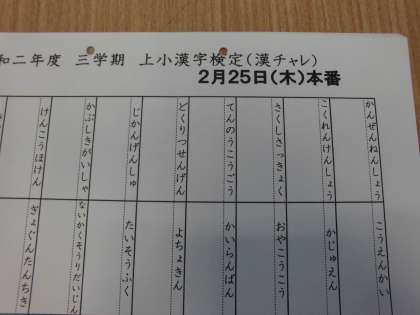 和二年度 三学期 上小漢字検定(漢チャレ)
2月25日(木)本番
かんぜんねんしょう
こくれんけんしょう
さくしさっきょく
てんのうこうごう
どくりつせんげん
じかんげんしゅ
かぶしきがいしゃ
けんこうほけん
こうえんかい
かじゅえん
おやこうこう
かいらんばん
よちょきん
たいそうふく
ないかくそうりだいじん
ぎょぐんたんちき